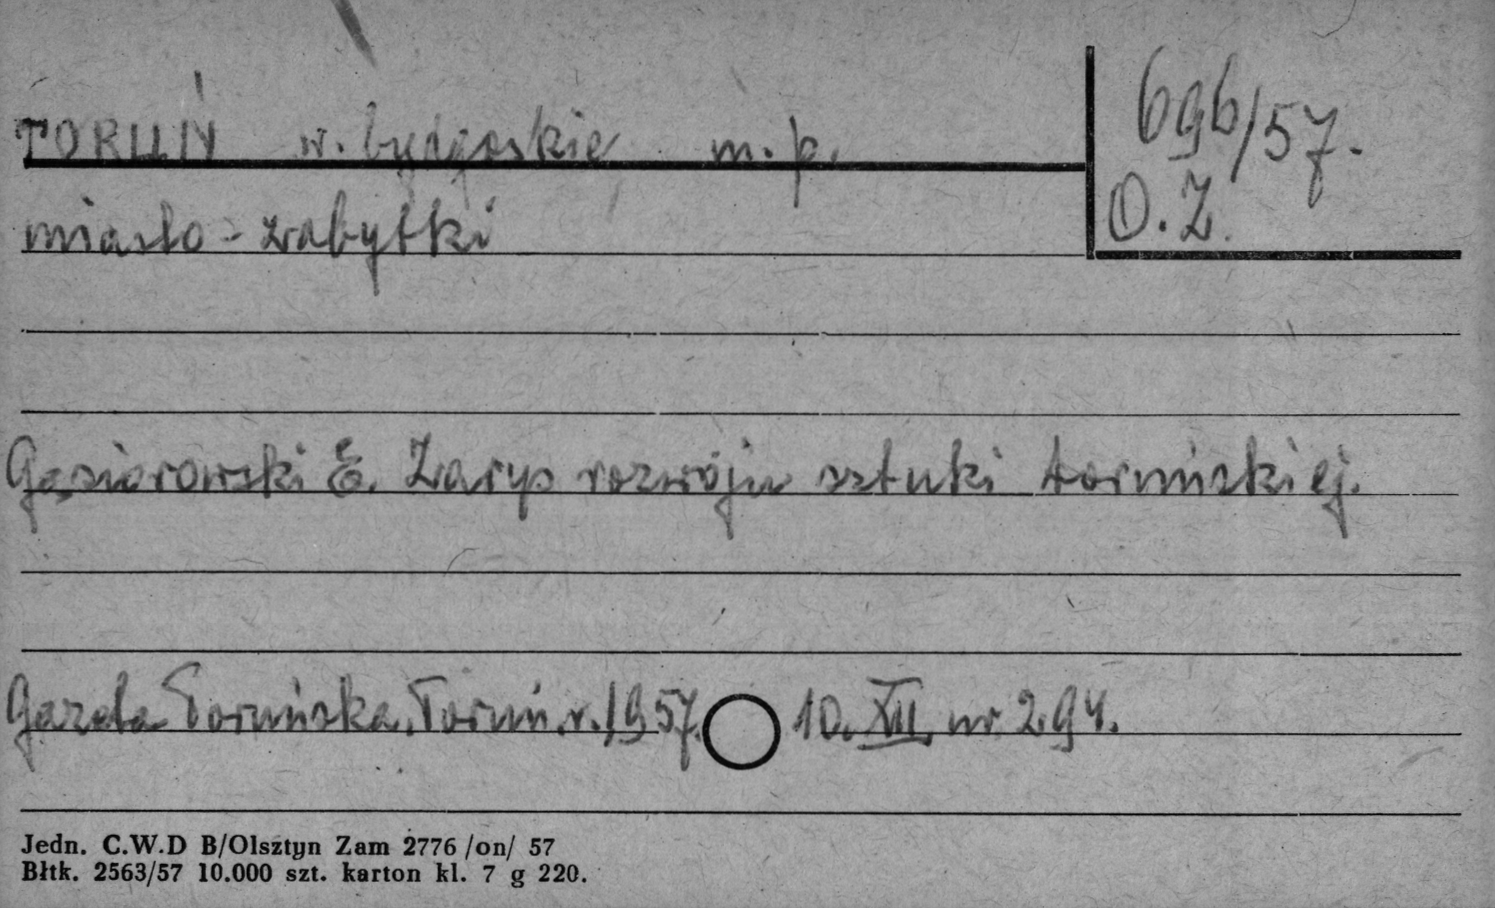 TORUŃ w. bydgoskie m. p.
696/57.
O. Z.
miasto - zabytki
Gąsiorowski E. Zarys rozwoju sztuki toruńskiej.
Gazeta Toruńska. Toruń. r. 1957. 10. XII. nr. 294.
Jedn. C.W.D B/Olsztyn Zam 2776 /on/ 57
Błtk. 2563/57 10.000 szt. karton kl. 7 g 220.